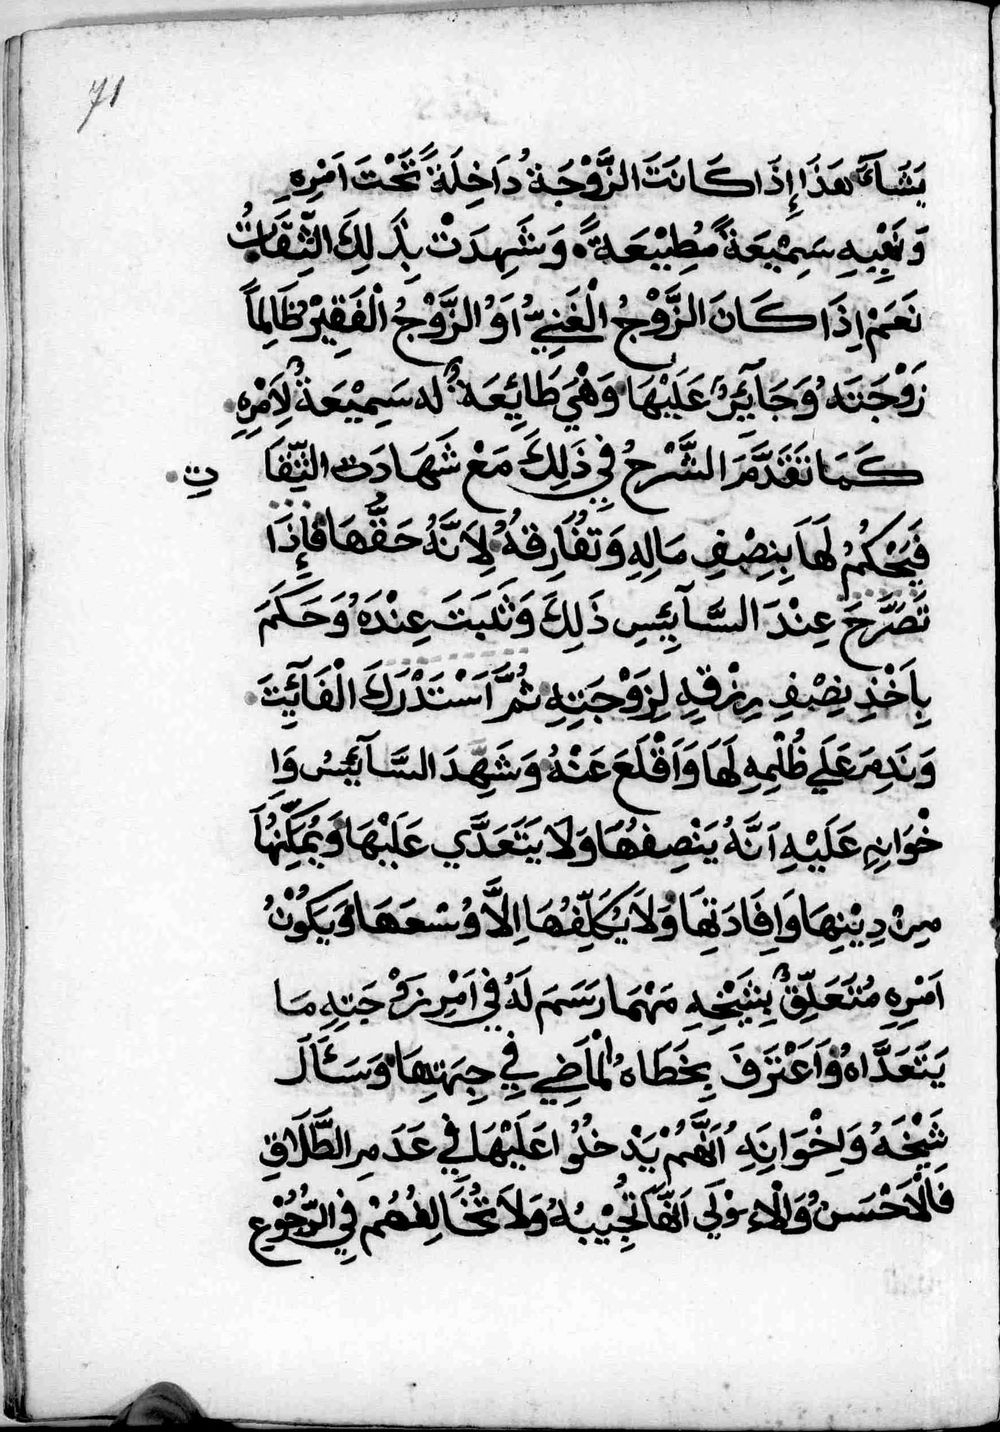 71
يَشَآءُ هَذَا إِذَا كَانَتَ الزَّوْجَةُ دَاخِلَةً تَحْتَ اَمْرِهِ
وَنَهْيِهِ سَمِيْعَةً مُطِيْعَةً وَشَهِدَتْ بِذَلِكَ الثِّقَاتُ
نَعَمْ اِذَا كَانَ الزَّوْجُ الْغَنِيُّ اَوُ الزَّوْجُ الْفَقِيْرُ ظَالِماً
زَوْجَتَهُ وَجَآئِرٌ عَلَيْهَا وَهْيَ طَائِعَةٌ له سَمِيْعَةٌ لِاَمْرِهِ
كَمَا تَقَدَّمَ الشَّرْحُ فِي ذَلِكَ مَعْ شَهَادَت الثِّقَا تِ
فَيَحْكُمُ لَهَا بِنِصْفِ مَالِهِ وَتُفَارِقُهُ لِاَنَّهُ حَقُّهَا فَإِذَا
تَصَرَّحَ عِنْدَ السَّآيِسِ ذَلِكَ وَثَبَتَ عِنْدَهُ وَحَكَمَ
بِاَخْذِ نِصْفِ رِزْقِهِ لِزَوْجَتِهِ ثُمَّ اَسْتَدْرَكَ الْفَآئِتَ
وَنَدِمَ عَلَي ظُلْمِهِ لَهَا وَاَقْلَعَ عَنْهُ وَشَهَّدَ السَّآئِسُ وَاِ
خْوَانِهِ عَلَيْهِ اَنَّهُ يَنْصِفُهَا وَلَا يَتَعَدَّي عَلَيْهَا وَيُمَكِّنُهَا
مِنْ دِيْنِهَا وَاِفَادَتِهَا وَلَا يُكَلِّفُهَا اِلَّا وُسْعَهَا وَيَكُوْنُ
اَمْرِهِ مُتَعَلِّقٌ بِشَيْخِهِ مَهْمَا رَسَمَ لَهُ فِي اَمْرِ زَوْجَتِهِ مَا
يَتَعَدَّاهُ وَاَعْتَرَفَ بِخَطَاهُ الْمَاضِي فِي جِهَتِهَا وَسَئَآلَ
شَيْخَهُ وَاِخْوَانِهِ اَنَّهُمْ يَدْخُلُوا عَلَيْهَا فِي عَدَمِ الطَّلَاقِ
فَالْاَحْسَنُ وَالْاَوْلَي اَنَّهَا تُجِيْبُهُ وَلَا تُخَالِفُهُمْ فِي الرُّجُوْعِ